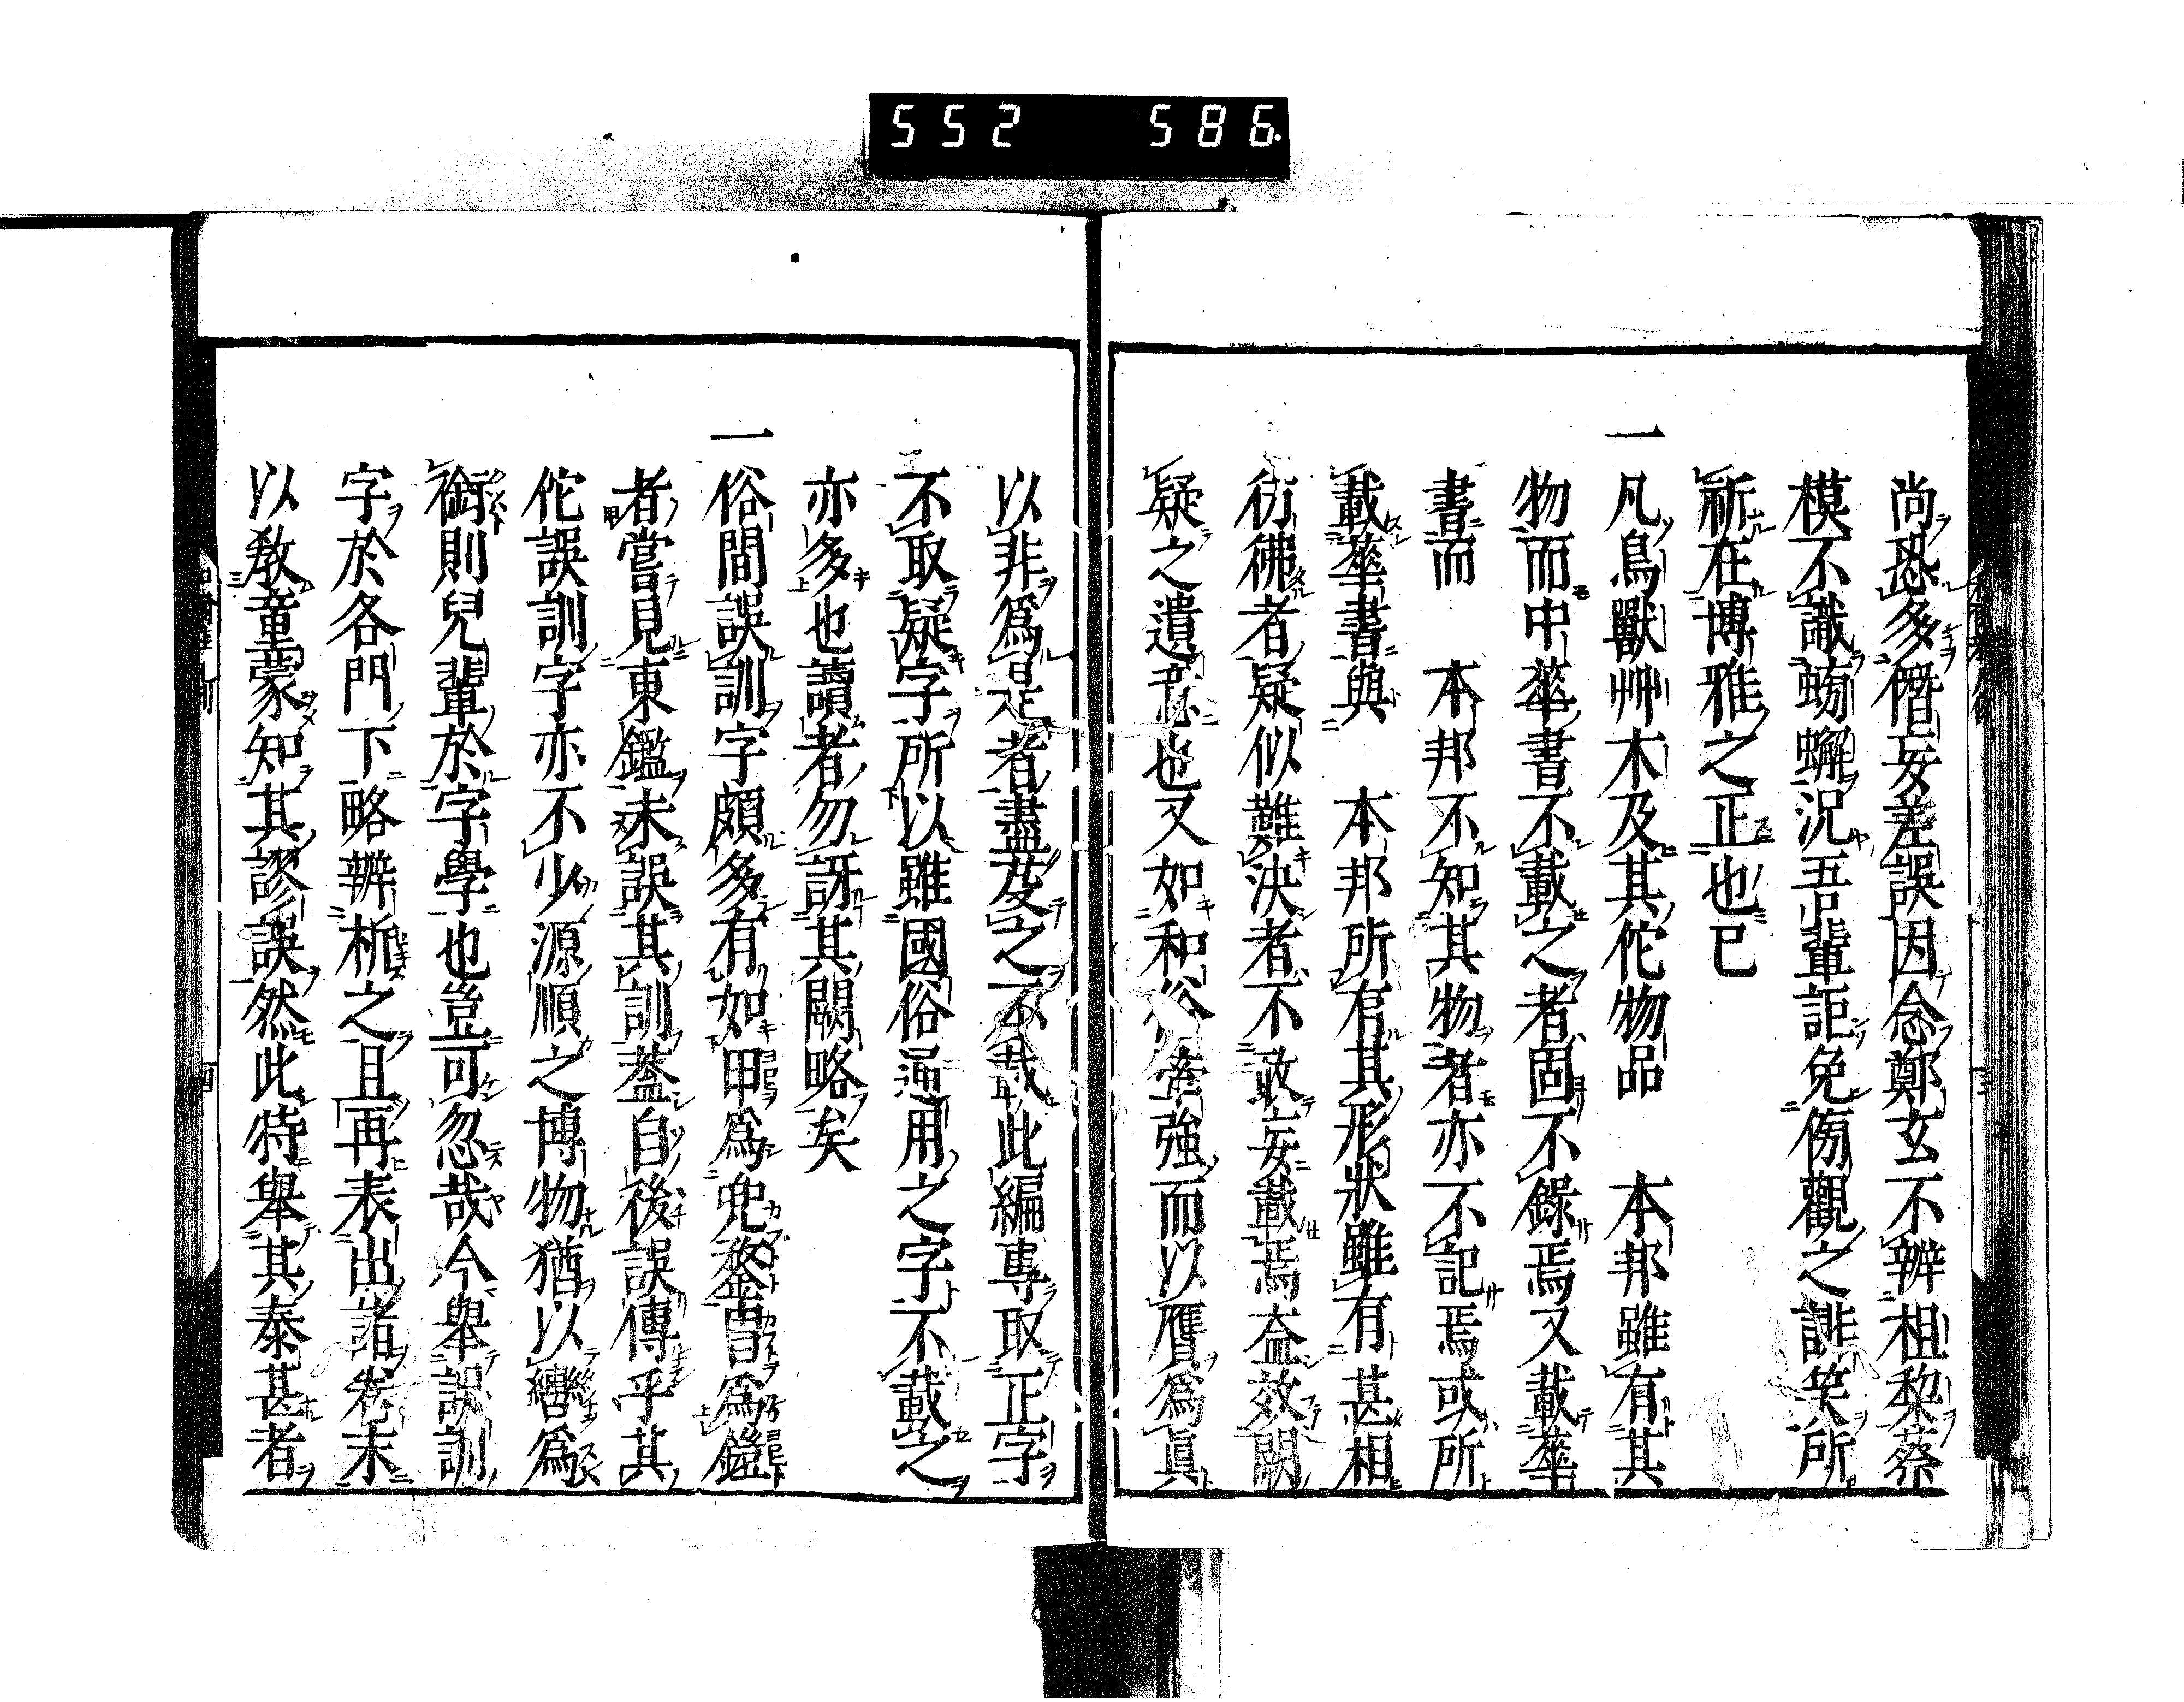 552 586.
尚恐多僭妄差誤因念鄭玄不辨柤棃蔡
模不識蛑蠏況吾輩詎免傍觀之誹笑所
祈在博雅之正也已
一凡鳥獸艸木及其佗物品 本邦雖有其
物而中華書不載之者固不錄焉又載華
書而 本邦不知其物者亦不記焉或所
載華書與 本邦所有其形狀雖有甚相
彷彿者疑似難決者不敢妄載焉益效闕
疑之遺意也又如和俗牽強而以贋爲眞
以非爲是者盡芟之不載此編專取正字
不取疑字所以雖國俗通用之字不載之
亦多也讀者勿訝其闕略矣
一俗間誤訓字頗多有如甲爲兜鍪冑爲鎧
者嘗見東鑑未誤其訓蓋自後誤傳乎其
佗誤訓字亦不少源順之博物猶以轡爲
銜則兒輩於字學也豈可忽哉今舉誤訓
字於各門下略辨析之且再表出諸卷末
以教童蒙知其謬誤然此特舉其泰甚者